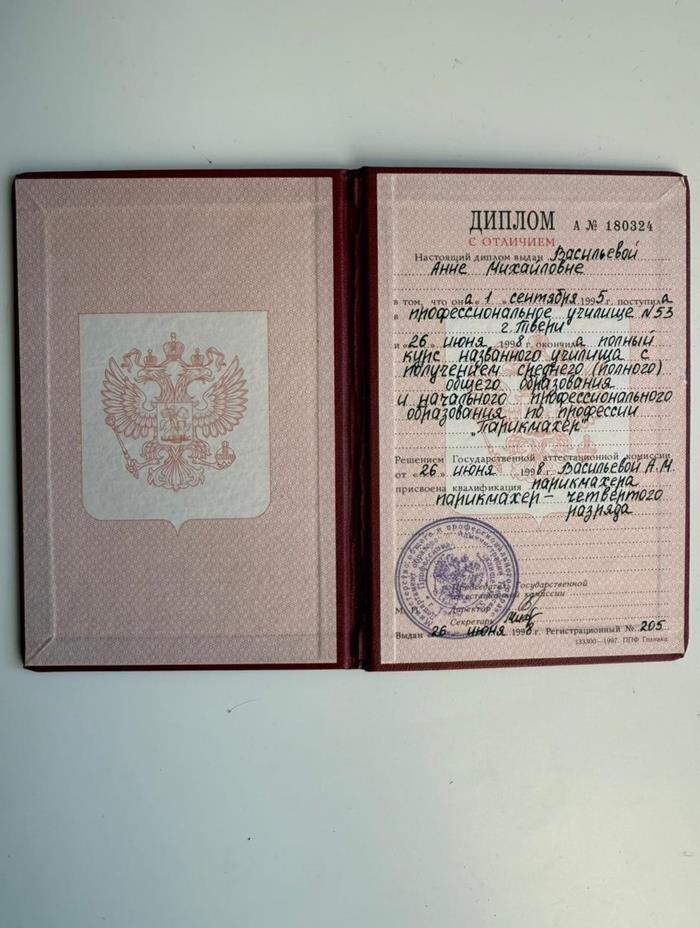 ДИПЛОМ А № 180324
С ОТЛИЧИЕМ
Настоящий диплом выдан Васильевой
Анне Михайловне
в том, что она „1„ сентября 1995 г. поступила
в профессиональное училище №53
г. Твери
и „26„ июня 1998 г. окончила полный
курс названного училища с
получением среднего (полного)
общего образования
и начального профессионального
образования по профессии
"Парикмахер"
Решением Государственной аттестационной комиссии
от «26.» июня 1998 г. Васильевой А.М.
присвоена квалификация парикмахера
парикмахер – четвертого
разряда
Председатель Государственной
аттестационной комиссии
М.
Директор
Секретарь
Выдан „26„ июня 1998 г. Регистрационный № 205
133300—1997. ППФ Гознака